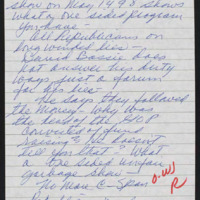 show on May 14, 98 shows
what a one sided program
you have -
All Republicans on
long winded lies -
David Bossie does
not answer his dirty
ways just a forum
for his lies -
He says they followed
the money - Why was
the head of the GOP
convicted of fund
raising? He doesn't
tell you that. What
a one sided unfair
garbage show - !
No More C-Span
O.W.
R